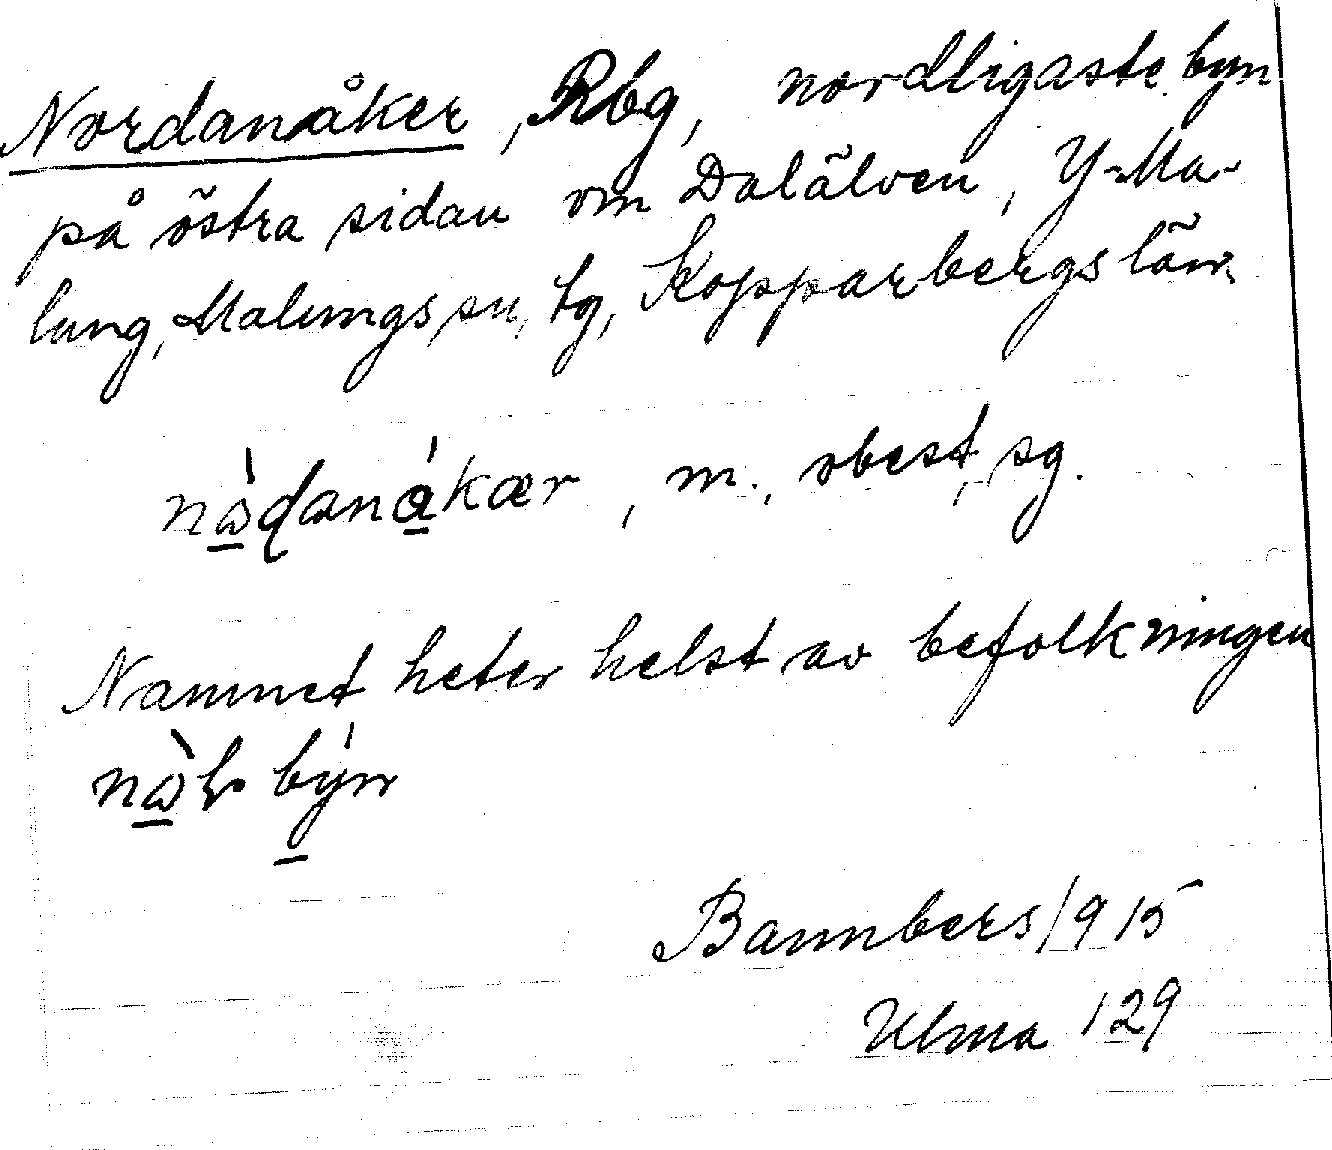 Nordanåker, Rbg, nordligaste byn
på östra sidan om Dalälven, Y-Ma-
lung, Malungs sn, tg, Kopparbergs län.
m., obest. sg.
Namnet heter helst av befolkningen
Bannbers 1915
Ulma 129